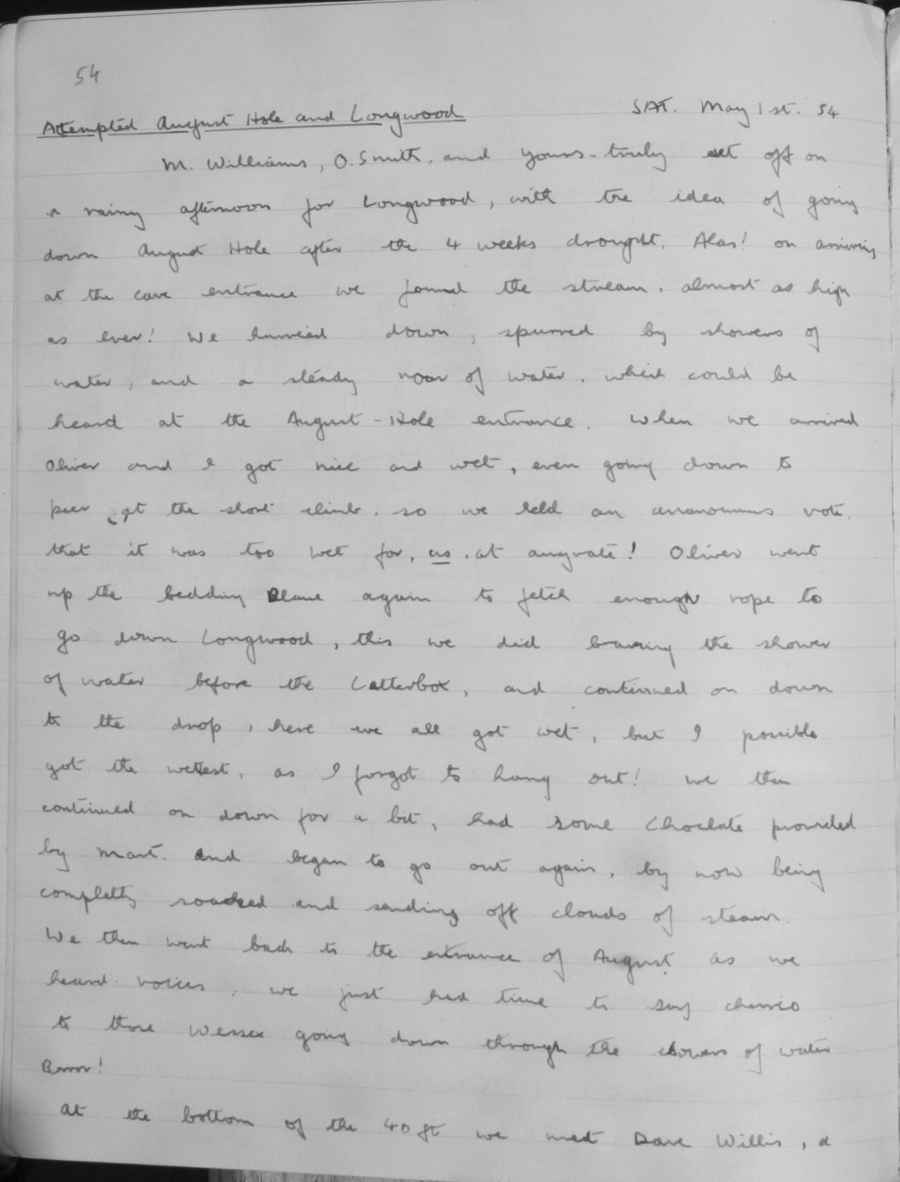 54
Attempted August Hole and Longwood SAT. May 1st. 54
M. Williams, O. Smith, and yours-truly set off on
a rainy afternoon for Longwood, with the idea of going
down August Hole after the 4 weeks drought. Alas! on arriving
at the cave entrance we found the stream. almost as high
as ever! We hurried down, spurred by showers of
water, and a steady roar of water. which could be
heard at the August-Hole entrance. When we arrived
Oliver and I got nice and wet, even going down to
peer at the short climb. so we held an unanoumus vote.
that it was too wet for, us. at anyrate! Oliver went
up the bedding Plane again to fetch enough rope to
go down Longwood, this we did braving the shower
of water before the Letterbox, and continued on down
to the drop, here we all got wet, but I possible
got the wettest, as I forgot to hang out! We then
continued on down for a bit, had some choclate provided
by Mart. and began to go out again, by now being
completly soacked and sending off clouds of steam.
We then went back to the entrance of August as we
heard voices, we just had time to say cheerio
to three Wessex going down through the showers of water
Brrrr!
At the bottom of the 40 ft we met Dave Willis, a